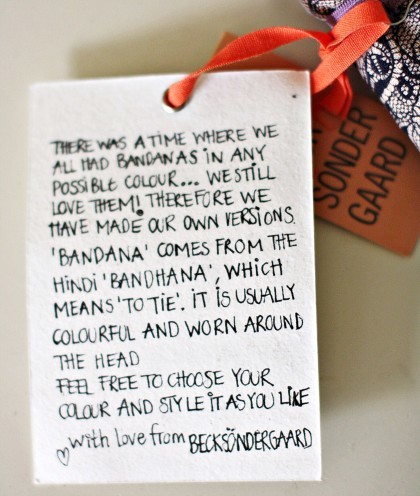 THERE WAS A TIME WHERE WE
ALL HAD BANDANAS IN ANY
POSSIBLE COLOUR... WE STILL
LOVE THEM! THEREFORE WE
HAVE MADE OUR OWN VERSIONS
'BANDANA' COMES FROM THE
HINDI 'BANDHANA', WHICH
MEANS 'TO TIE'. IT IS USUALLY
COLOURFUL AND WORN AROUND
THE HEAD
FEEL FREE TO CHOOSE YOUR
COLOUR AND STYLE IT AS YOU LIKE
with love from BECKSÖNDERGAARD
SONDER
GAARD